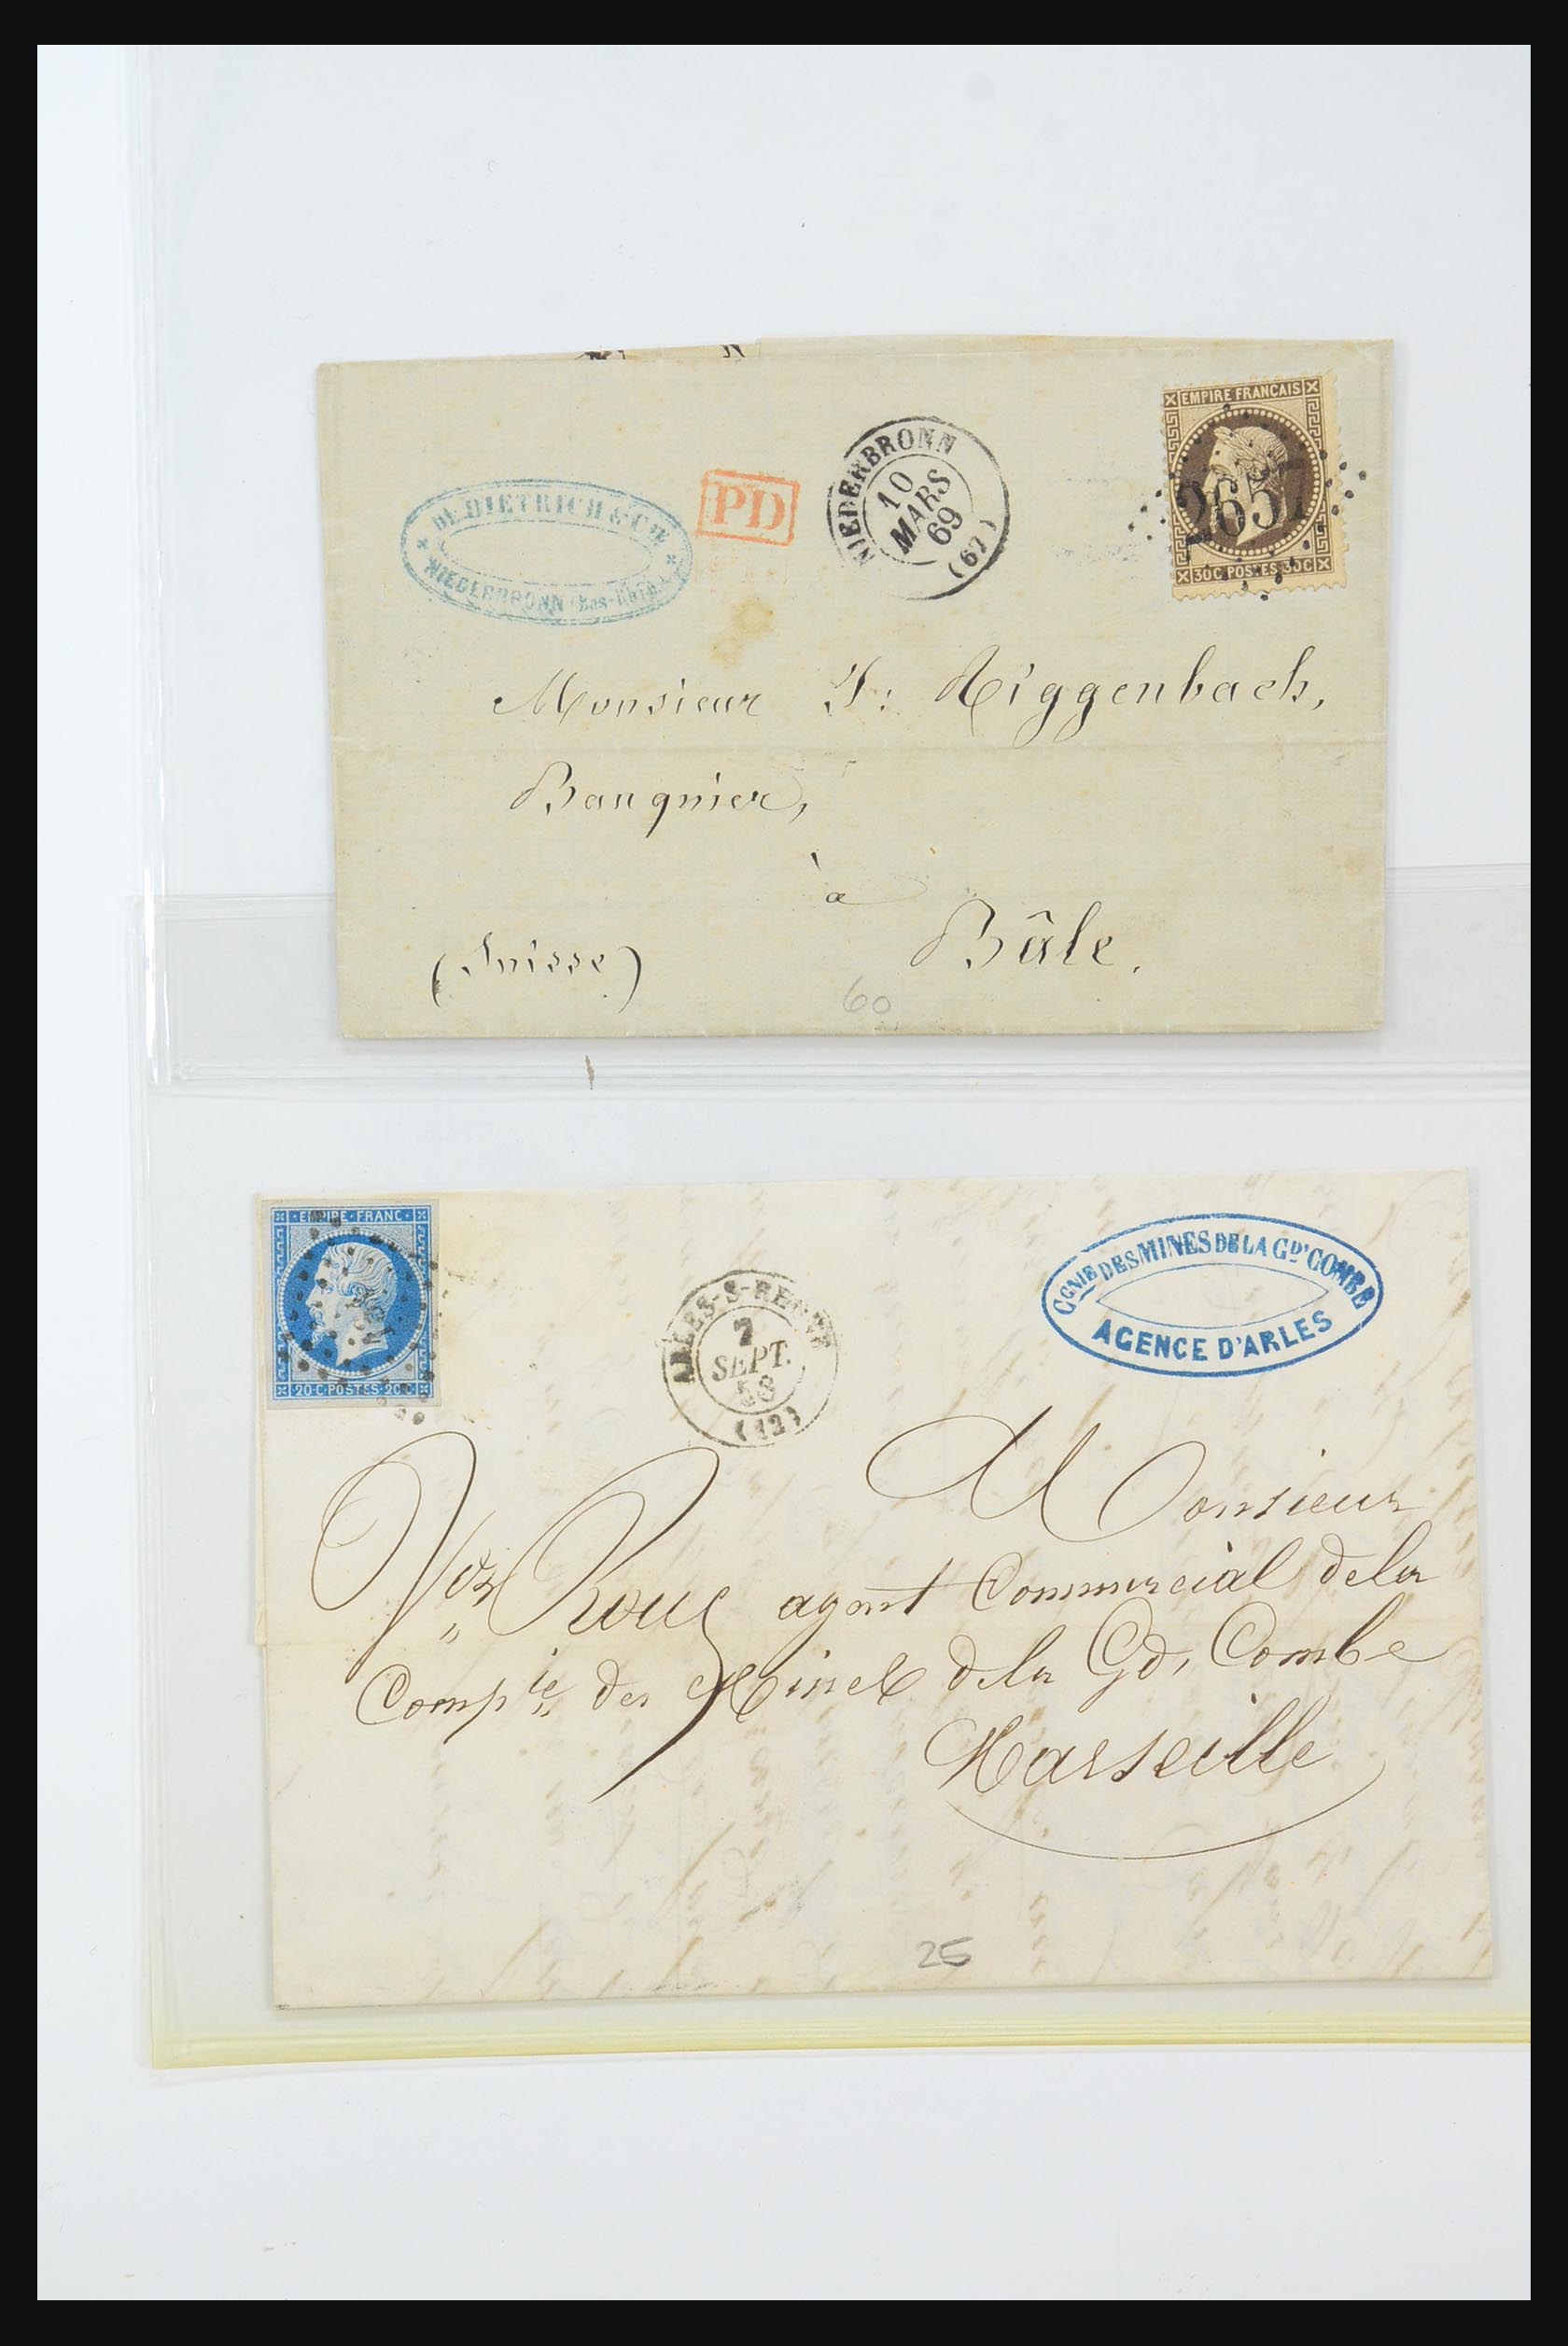 DE DIETRICH & Cie
NIEDERBRONN (Bas-Rhin)
PD
NIEDERBRONN
10
MARS
69
(67)
EMPIRE FRANCAIS
2657
30C POSTES 30C
Monsieur J: Riggenbach,
Banquier,
à
Bâle.
(Suisse)
60
EMPIRE FRANC
20C POSTES 20C
ARLES-S-RHONE
7
SEPT.
58
(12)
Cgnie DES MINES DE LA Gd' COMBE
AGENCE D'ARLES
Monsieur
Vor Roux agent Commercial de la
Compie des Mines de la Gd, Combe
Marseille
25